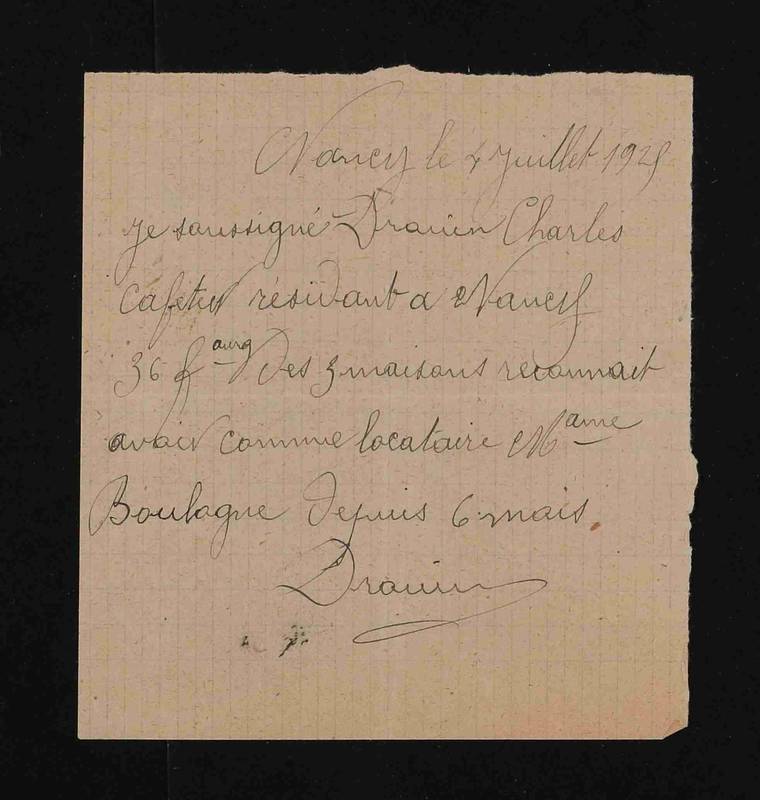 Nancy le 4 juillet 1925
je soussigné Drouin Charles
cafetier résidant a Nancy
36 f aurg des 3 maisons reconnait
avoir comme locataire Mame
Boulogne depuis 6 mois
Drouin